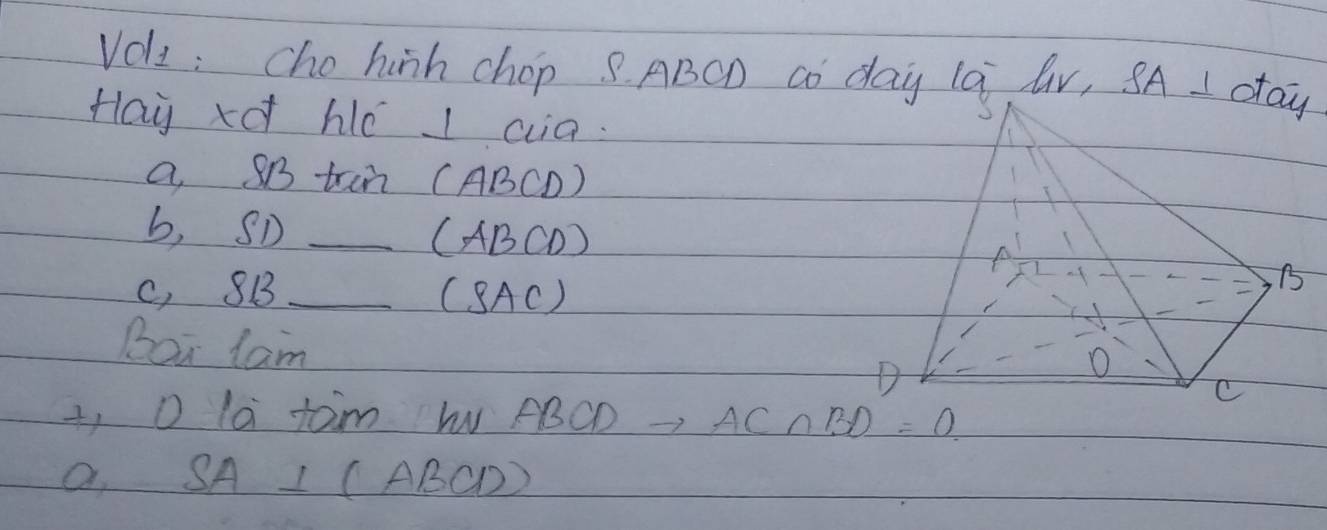 Vd1: Cho hình chóp S.ABCD có đáy là hv, SA ⊥ đáy
Hãy xđ h/c ⊥ của:
a, SB trên (ABCD)
b, SD — (ABCD)
c, SB — (SAC)
S
A
B
D
O
C
Bài làm
+, O là tâm hv ABCD → AC ∩ BD = O.
a, SA ⊥ (ABCD)